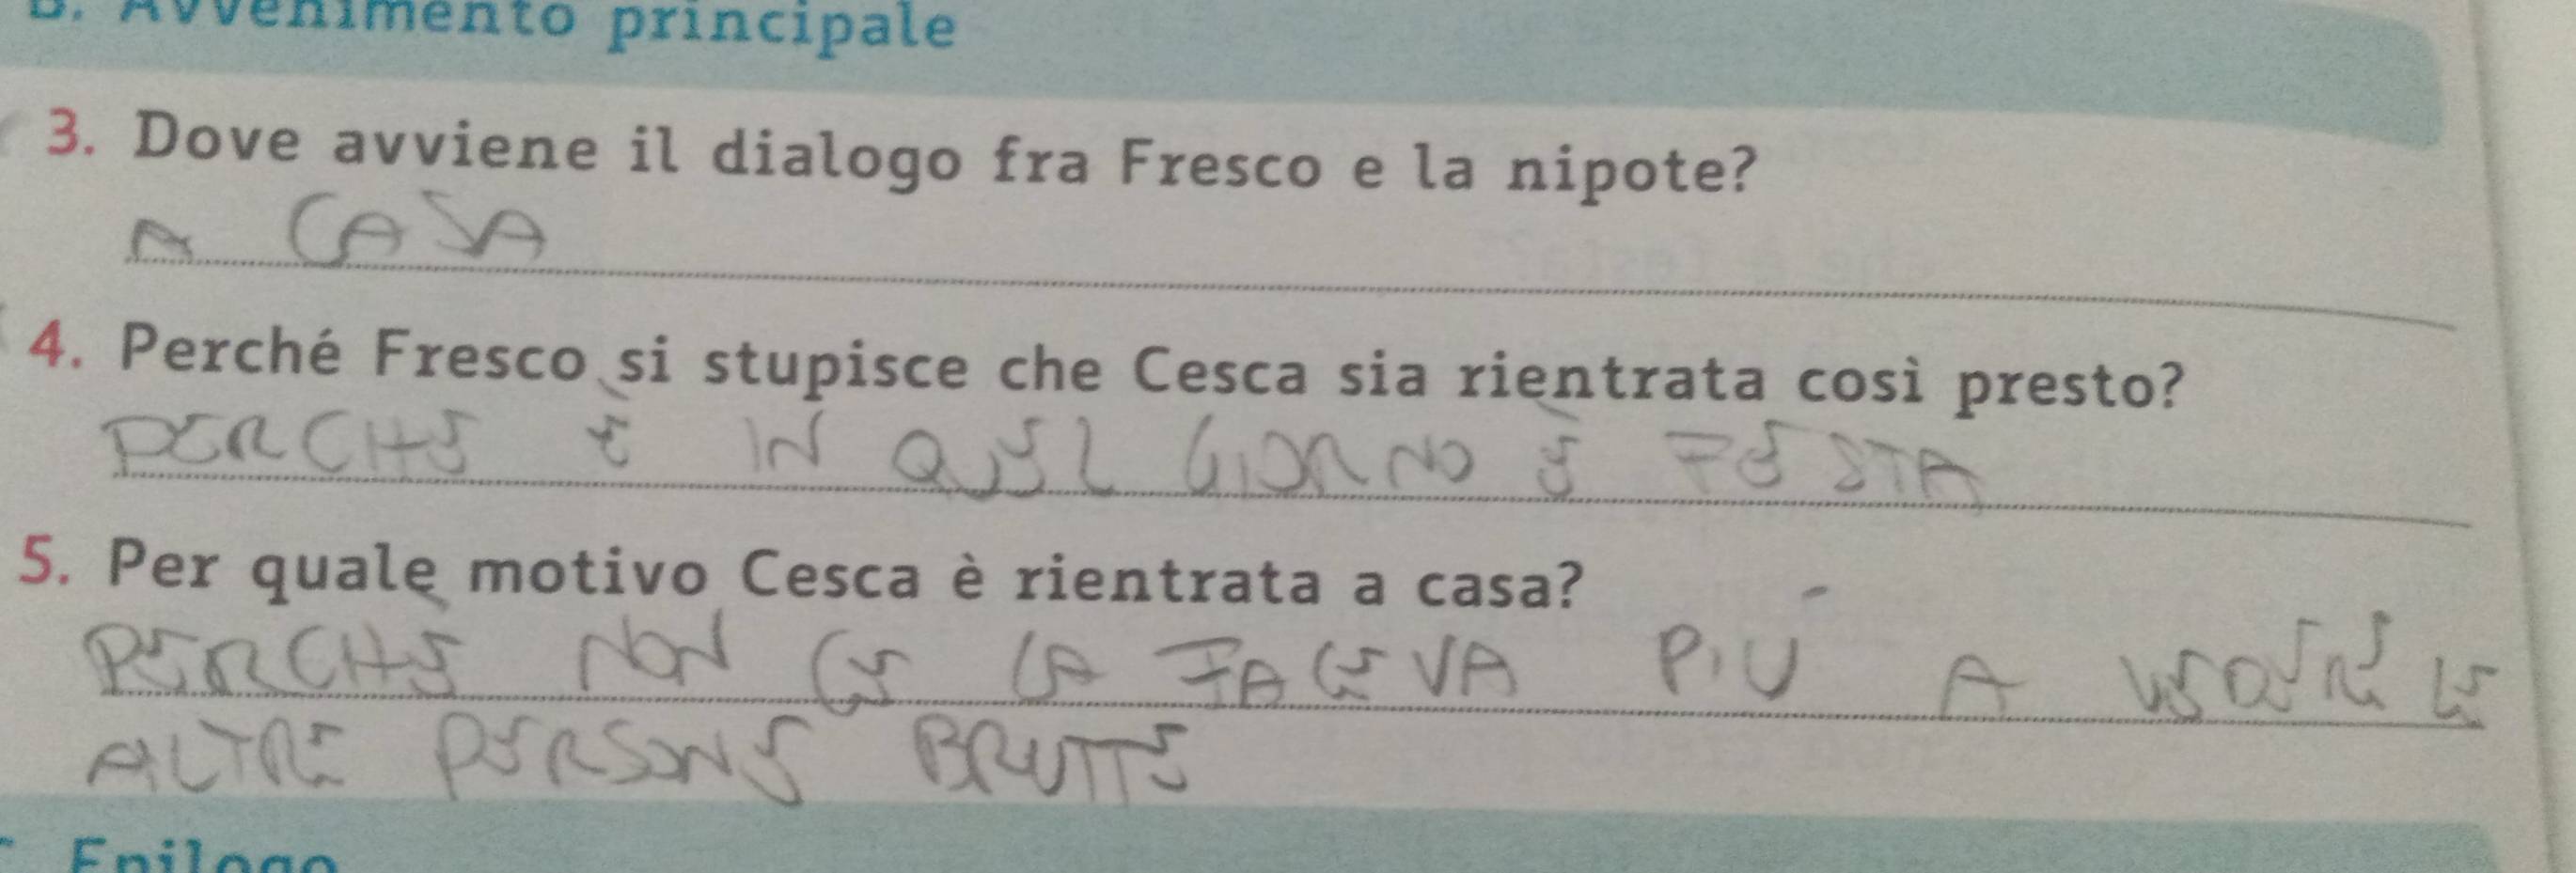 B. Avvenimento principale
3. Dove avviene il dialogo fra Fresco e la nipote?
A CASA
4. Perché Fresco si stupisce che Cesca sia rientrata così presto?
PERCHE È IN QUEL GIORNO È FESTA
5. Per quale motivo Cesca è rientrata a casa?
PERCHE NON CE LA FACEVA PIÙ A VEDERE LE
ALTRE PERSONE BRUTTE
Epilogo